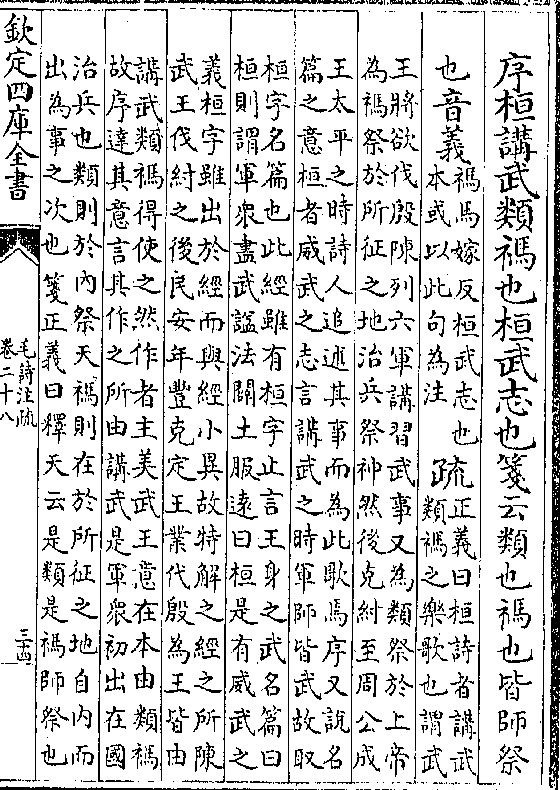 序桓講武類禡也桓武志也箋云類也禡也皆師祭
也音義禡馬嫁反桓武志也
本或以此句為注
疏正義曰桓詩者講武
類禡之樂歌也謂武
王將欲伐殷陳列六軍講習武事又為類祭於上帝
為禡祭於所征之地治兵祭神然後克紂至周公成
王太平之時詩人追述其事而為此歌焉序又說名
篇之意桓者威武之志言講武之時軍師皆武故取
桓字名篇也此經雖有桓字止言王身之武名篇曰
桓則謂軍衆盡武謚法闢土服遠曰桓是有威武之
義桓字雖出於經而與經小異故特解之經之所陳
武王伐紂之後民安年豐克定王業代殷為王皆由
講武類禡得使之然作者主美武王意在本由類禡
故序達其意言其作之所由講武是軍衆初出在國
治兵也類則於內祭天禡則在於所征之地自內而
出為事之次也 箋正義曰釋天云是類是禡師祭也
欽定四庫全書
毛詩注疏
卷二十八
三十四